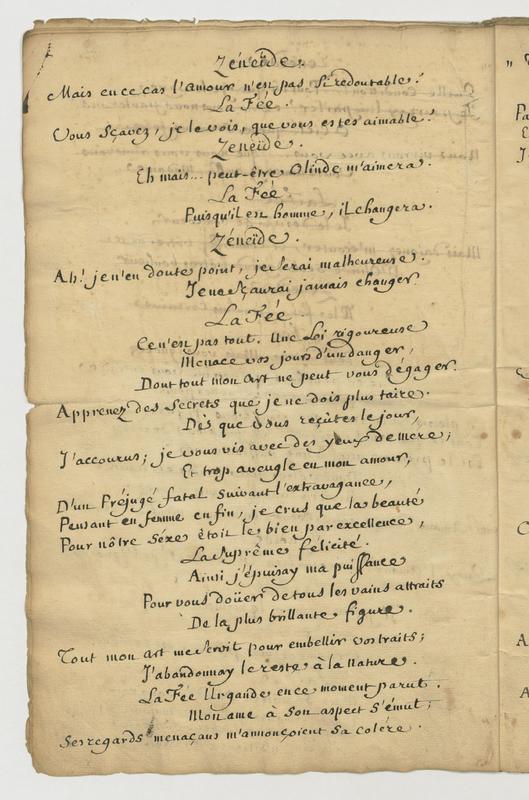 Zénéïde.
Mais en ce cas l'amour n'en pas si redoutable.
La Fée.
Vous sçavez, je le vois, que vous estes aimable.
Zeneïde.
Eh mais... peut-être Olinde m'aimera.
La Fée.
Puisqu'il en homme, il changera.
Zénéïde.
Ah! je n'en doute point, je serai malheureuse.
Je ne sçaurai jamais changer.
La Fée.
Ce n'en pas tout. Une Loi rigoureuse
Menace vos jours d'un danger,
Dont tout mon art ne peut vous dégager.
Apprenez des secrets que je ne dois plus taire.
Dès que vous reçûtes le jour,
J'accourus; je vous vis avec des yeux de mere;
Et trop aveugle en mon amour,
D'un Préjugé fatal suivant l'extravagance,
Pensant en femme enfin, je crus que la beauté
Pour nôtre sexe étoit le bien par excellence,
La suprême felicité.
Ainsi j'épuisay ma puissance
Pour vous doüer de tous les vains attraits
De la plus brillante figure.
Tout mon art me servit pour embellir vos traits;
J'abandonnay le reste à la nature.
La Fée Urgande en ce moment parut.
Mon ame à son aspect s'émut;
Ses regards menaçans m'annonçoient sa colére.